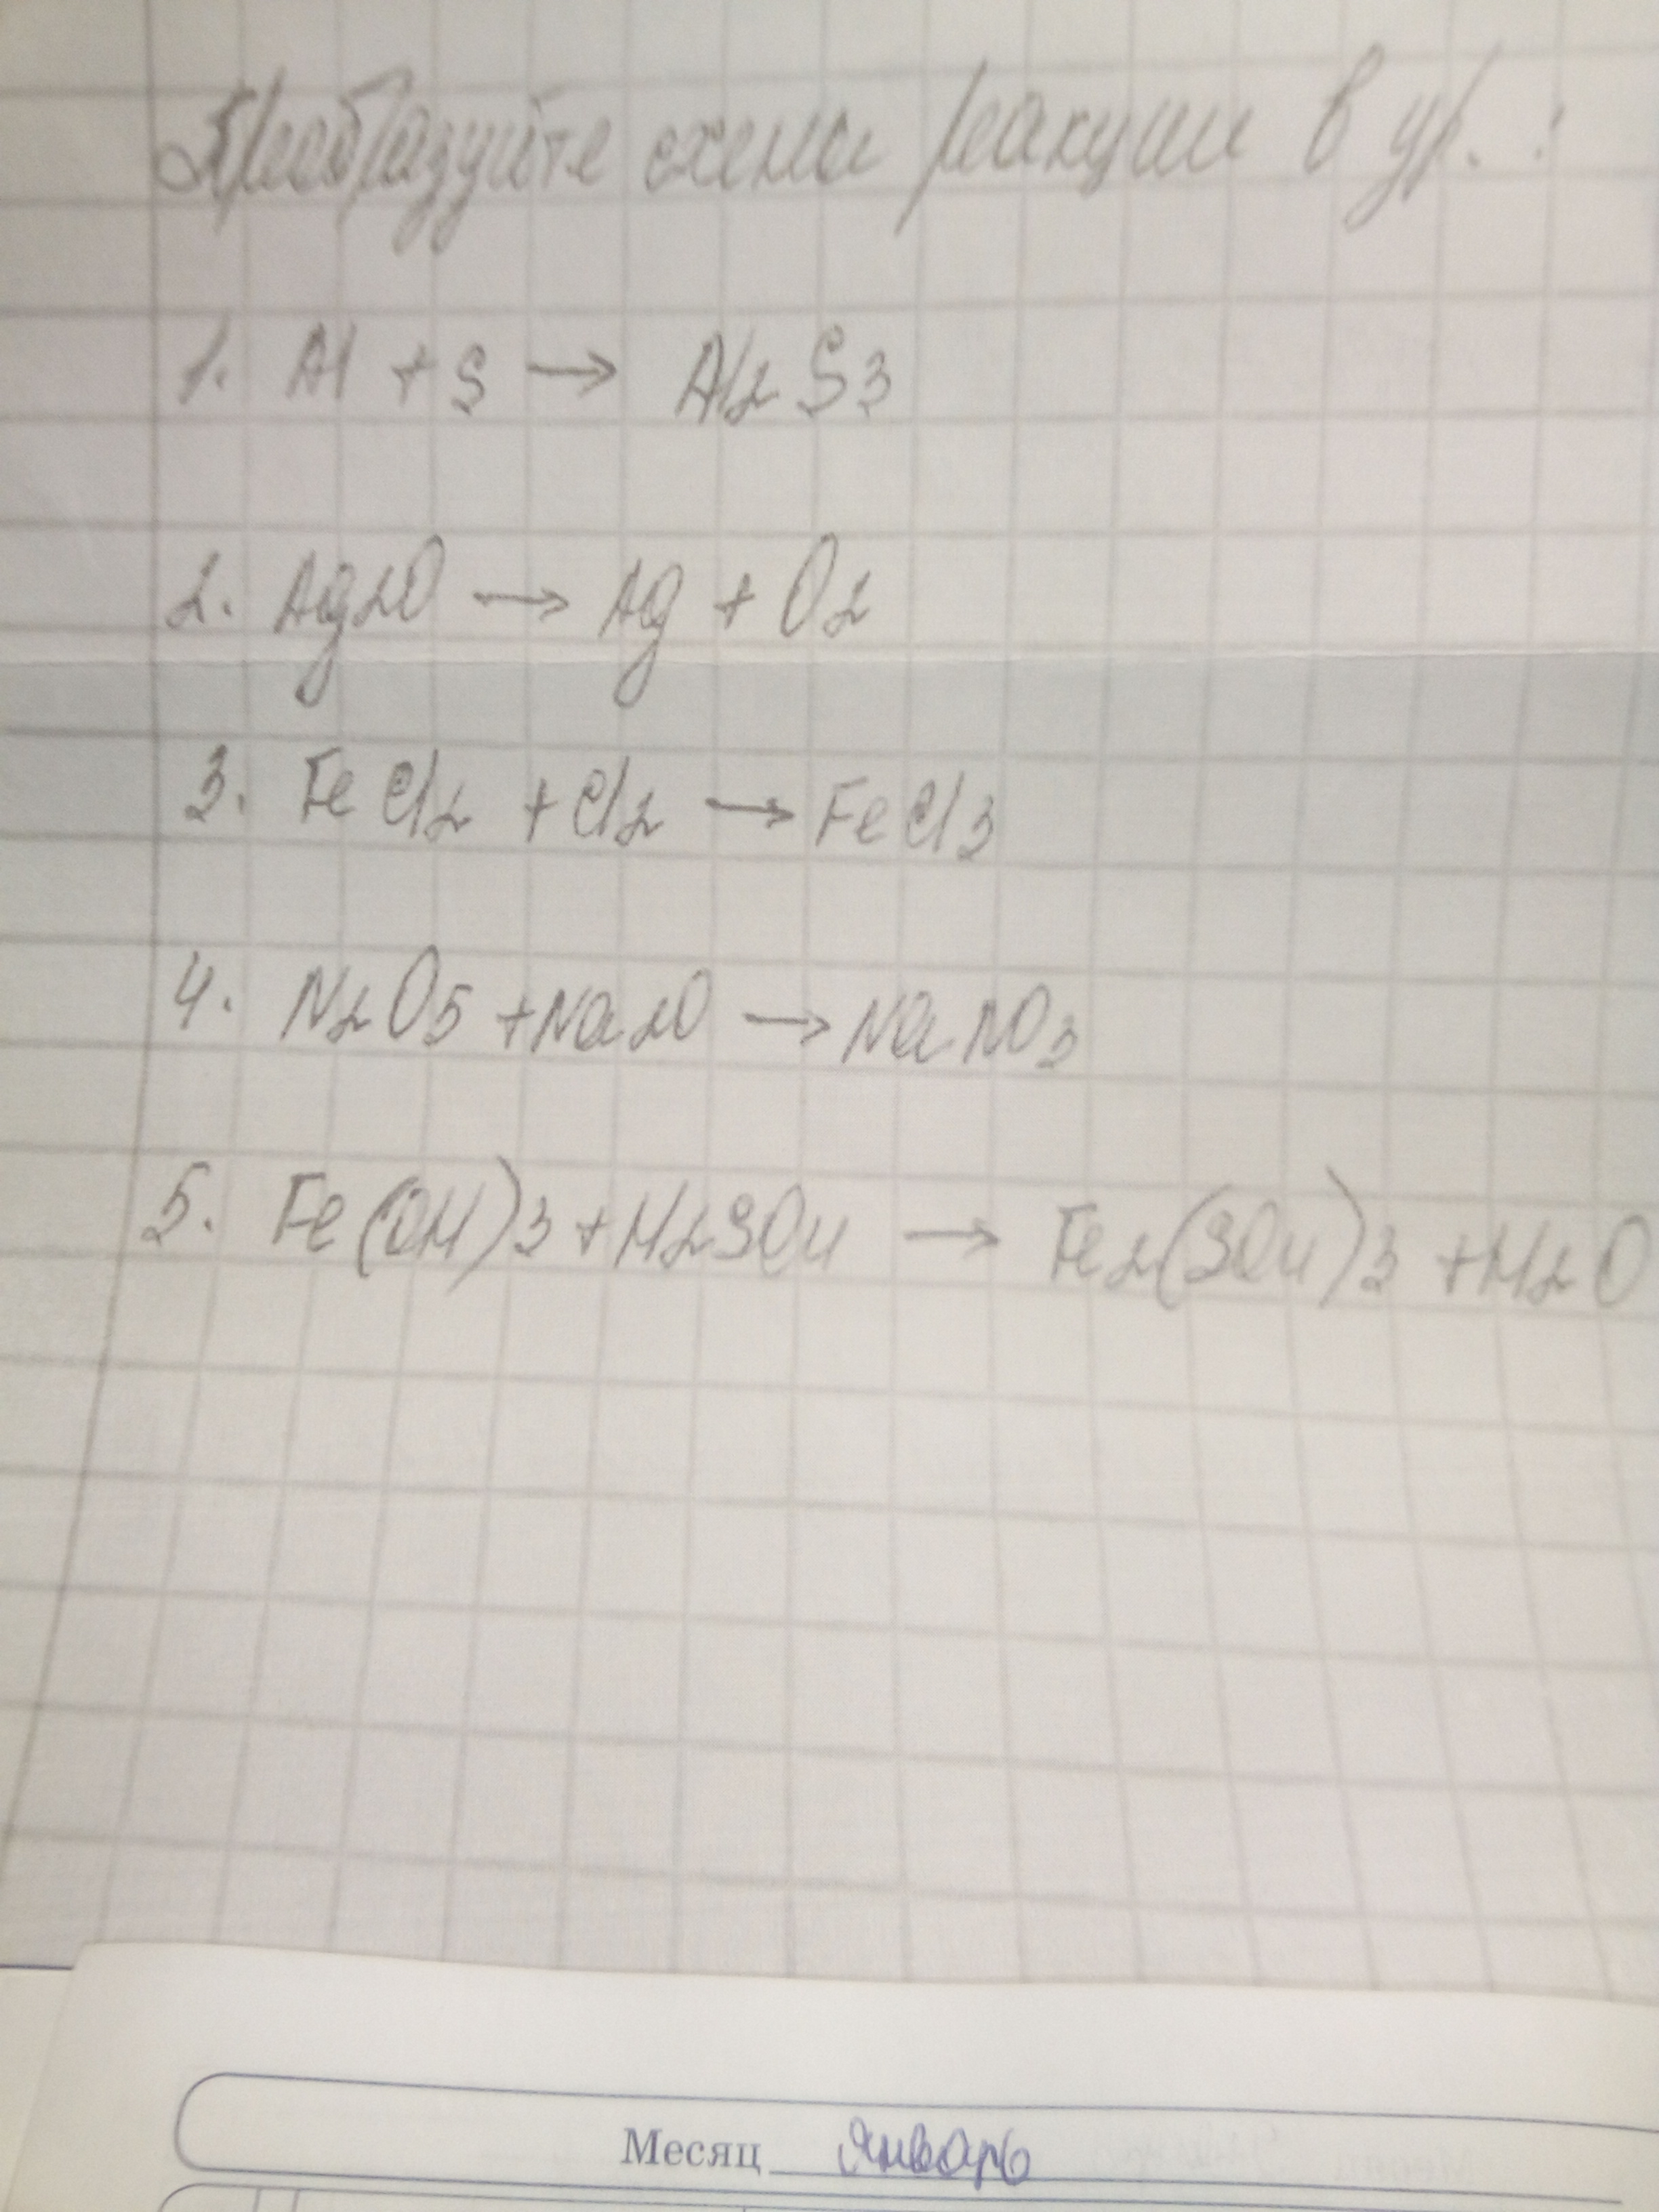 Преобразуйте схемы реакции в ур. :
1. Al + S → Al2 S3
2. Ag2O → Ag + O2
3. FeCl2 + Cl2 → FeCl3
4. N2O5 + Na2O → NaNO3
5. Fe(OH)3 + H2SO4 → Fe2(SO4)3 + H2O
Месяц Январь